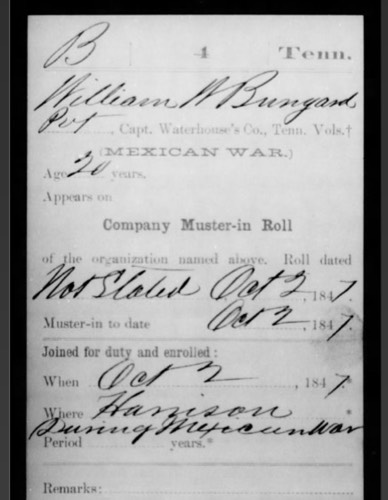 B 4 Tenn.
William W Bungard
Pvt, Capt. Waterhouse's Co., Tenn. Vols.†
(MEXICAN WAR.)
Age 20 years.
Appears on
Company Muster-in Roll
of the organization named above. Roll dated
Not Stated Oct 2, 1847.
Muster-in to date Oct 2, 1847.
Joined for duty and enrolled:
When Oct 2, 1847.*
Where Harrison *
During Mexican War
Period years.*
Remarks: